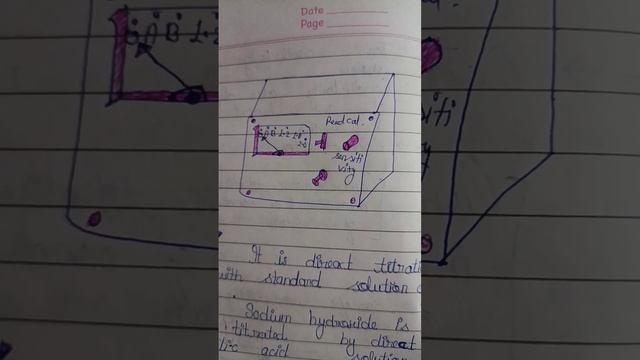 Date
Page
Read cal.
sensiti
vity
It is direct tetrati
with standard solution
Sodium hydroxide is
titrated by direct
acid solution